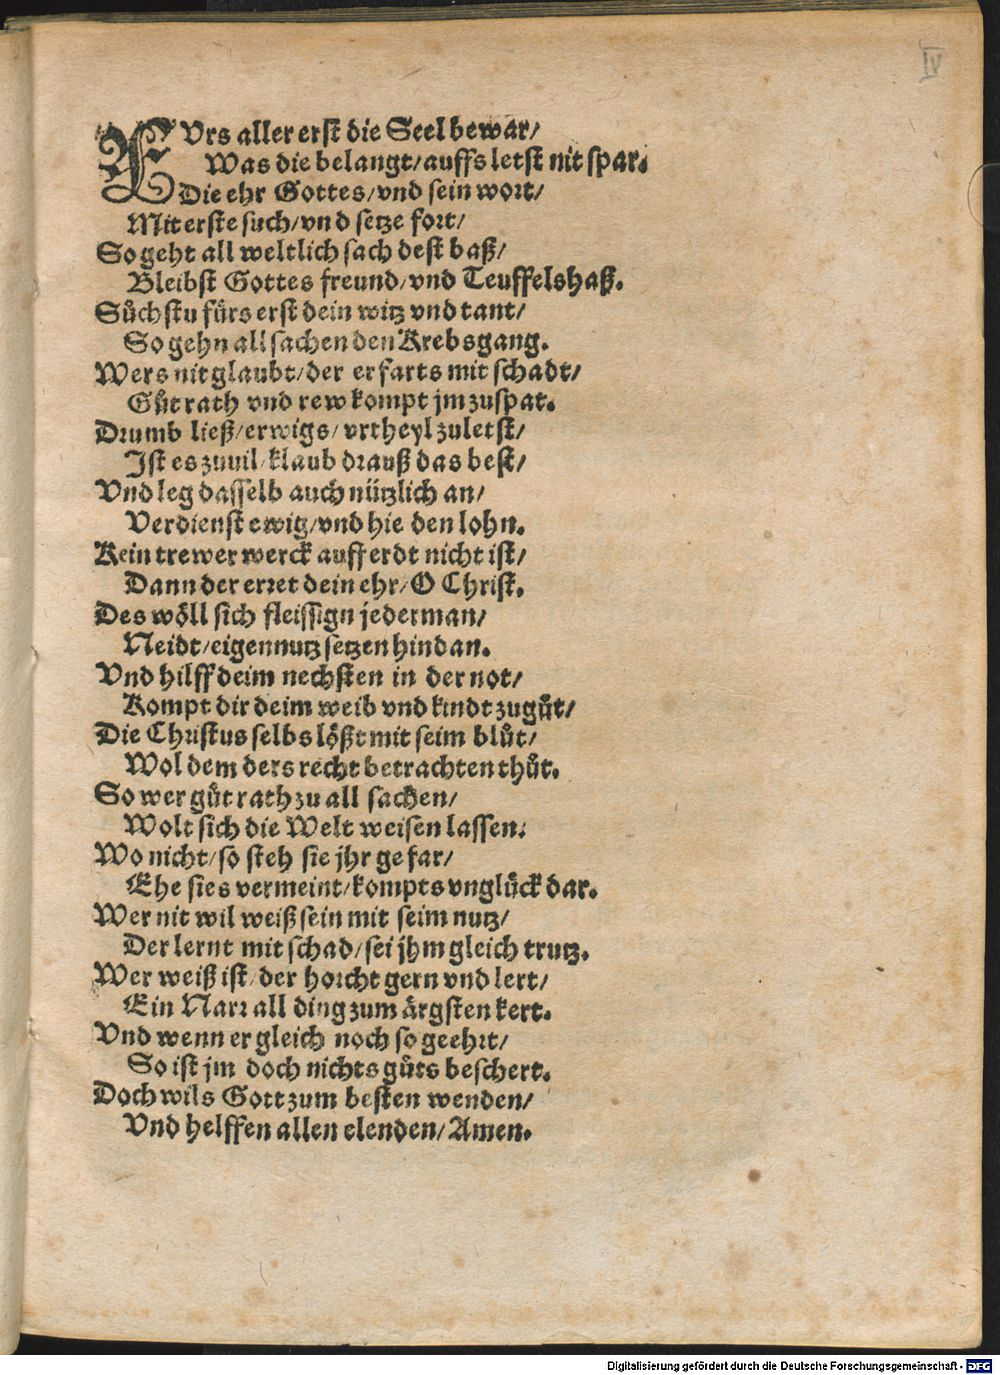 IV
FVrs aller erst die Seel bewar/
Was die belangt/ auffs letst nit spar.
Die ehr Gottes/ vnd sein wort/
Mit erste such/ vnd setze fort/
So geht all weltlich sach dest baß/
Bleibst Gottes freund/ vnd Teuffelshaß.
Sůchstu fürs erst dein witz vnd tant/
So gehn all sachen den Krebsgang.
Wers nit glaubt/ der erfarts mit schadt/
Gůt rath vnd rew kompt jm zuspat.
Drumb ließ/ erwigs/ vrtheyl zuletst/
Ist es zuuil/ klaub drauß das best/
Vnd leg dasselb auch nützlich an/
Verdienst ewig/ vnd hie den lohn.
Kein trewer werck auff erdt nicht ist/
Dann der erret dein ehr/ O Christ.
Des wöll sich fleissign jederman/
Neidt/ eigennutz setzen hindan.
Vnd hilff deim nechsten in der not/
Kompt dir deim weib vnd kindt zugůt/
Die Christus selbs lößt mit seim blůt/
Wol dem ders recht betrachten thůt.
So wer gůt rath zu all sachen/
Wolt sich die Welt weisen lassen.
Wo nicht/ so steh sie jhr gefar/
Ehe sies vermeint/ kompts vnglück dar.
Wer nit wil weiß sein mit seim nutz/
Der lernt mit schad/ sei jhm gleich trutz.
Wer weiß ist/ der horcht gern vnd lert/
Ein Narr all ding zum ärgsten kert.
Vnd wenn er gleich noch so geehrt/
So ist jm doch nichts gůts beschert.
Doch wils Gott zum besten wenden/
Vnd helffen allen elenden/ Amen.
Digitalisierung gefördert durch die Deutsche Forschungsgemeinschaft - DFG